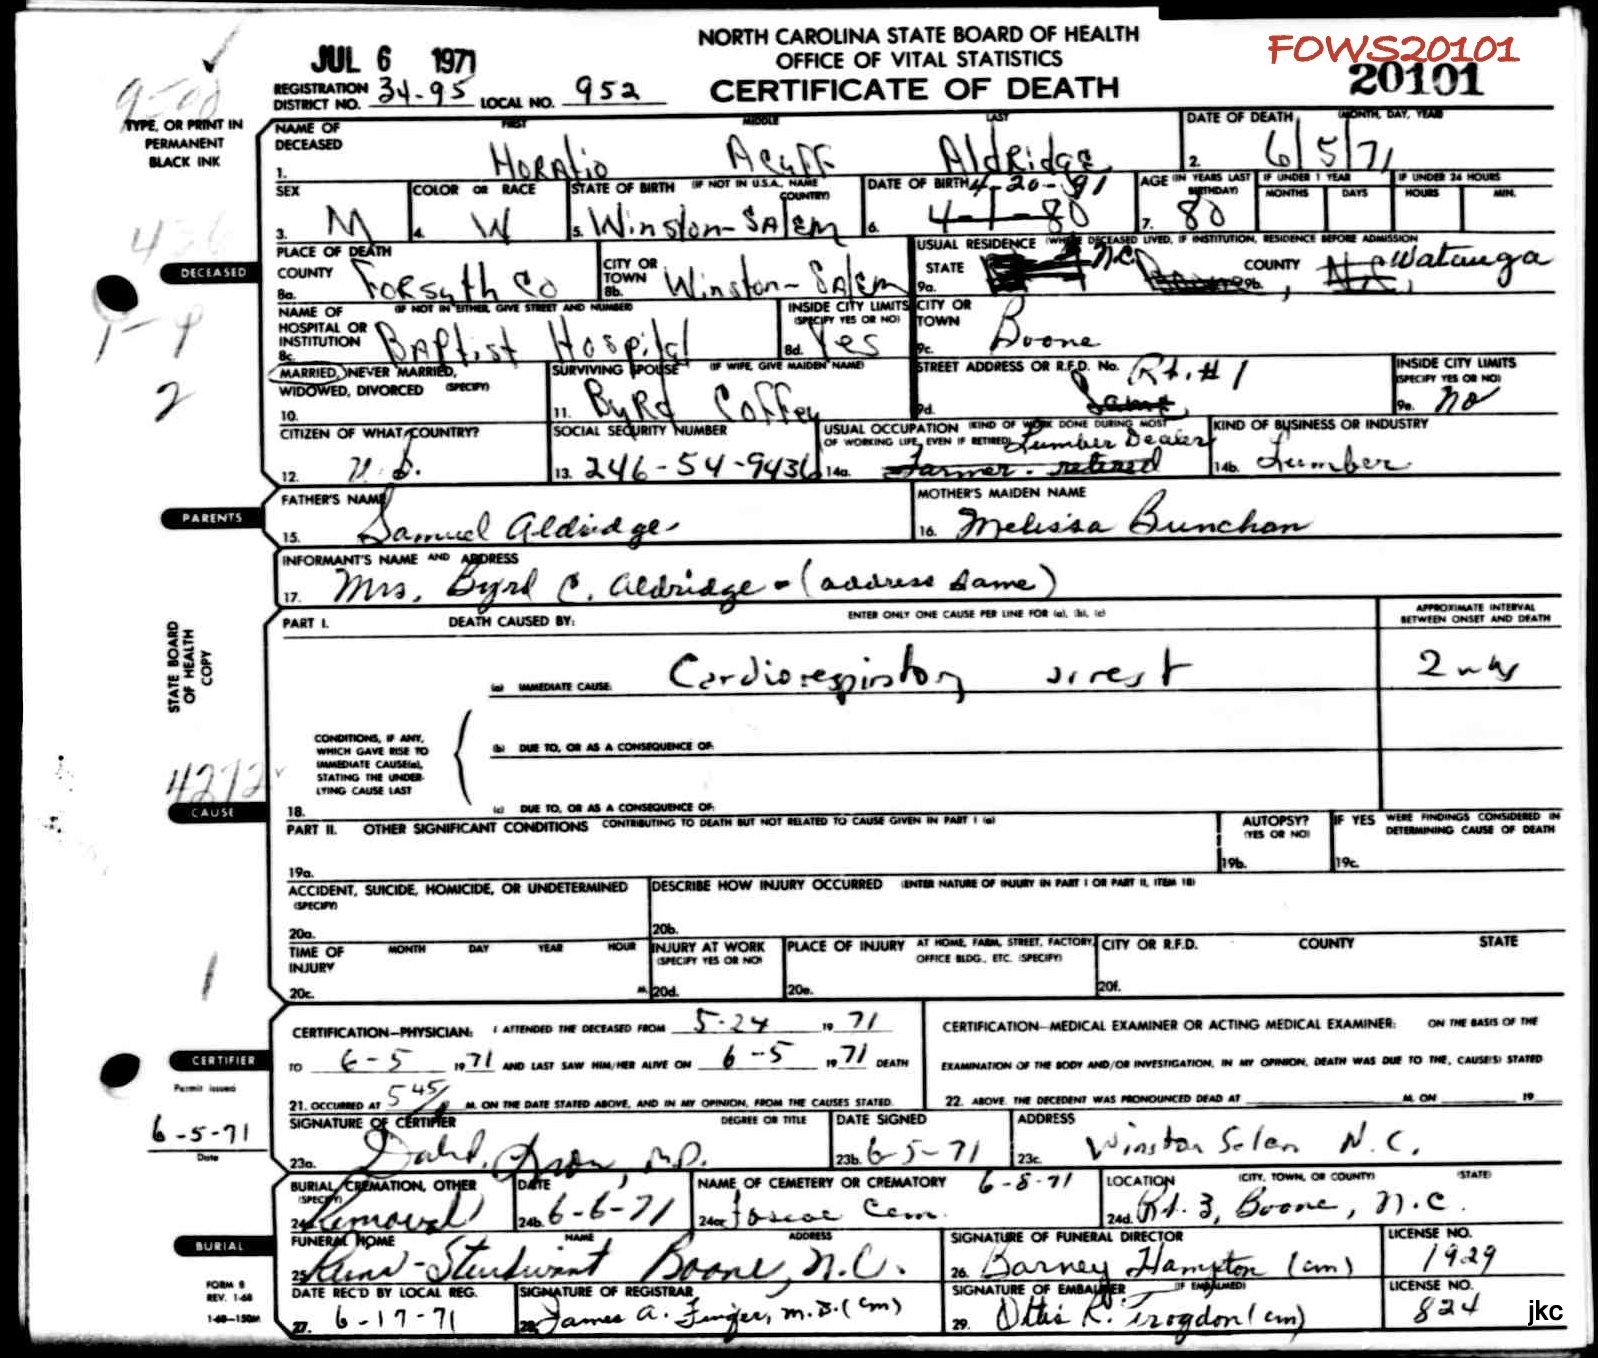 NORTH CAROLINA STATE BOARD OF HEALTH
OFFICE OF VITAL STATISTICS
CERTIFICATE OF DEATH
FOWS20101
20101
JUL 6 1971
REGISTRATION DISTRICT NO. 34-95 LOCAL NO. 952
TYPE, OR PRINT IN
PERMANENT
BLACK INK
NAME OF DECEASED FIRST MIDDLE LAST
1. Horatio Acuff Aldridge
DATE OF DEATH (MONTH, DAY, YEAR)
2. 6/5/71
SEX
3. M
COLOR OR RACE
4. W
STATE OF BIRTH (IF NOT IN U.S.A., NAME COUNTRY)
5. Winston-Salem
DATE OF BIRTH 4-20-91
6. 4-1-80
AGE (IN YEARS LAST BIRTHDAY)
7. 80
IF UNDER 1 YEAR
MONTHS DAYS
IF UNDER 24 HOURS
HOURS MIN.
DECEASED
PLACE OF DEATH
COUNTY
8a. Forsyth Co
CITY OR TOWN
8b. Winston-Salem
USUAL RESIDENCE (WHERE DECEASED LIVED, IF INSTITUTION, RESIDENCE BEFORE ADMISSION
STATE N.C.
9a.
COUNTY Watauga
9b.
NAME OF HOSPITAL OR INSTITUTION (IF NOT IN EITHER, GIVE STREET AND NUMBER)
8c. Baptist Hospital
INSIDE CITY LIMITS (SPECIFY YES OR NO)
8d. Yes
CITY OR TOWN
9c. Boone
MARRIED, NEVER MARRIED, WIDOWED, DIVORCED (SPECIFY)
10.
SURVIVING SPOUSE (IF WIFE, GIVE MAIDEN NAME)
11. Byrd Coffey
STREET ADDRESS OR R.F.D. No. Rt. # 1
9d. Same
INSIDE CITY LIMITS (SPECIFY YES OR NO)
9e. No
CITIZEN OF WHAT COUNTRY?
12. U.S.
SOCIAL SECURITY NUMBER
13. 246-54-9436
USUAL OCCUPATION (KIND OF WORK DONE DURING MOST OF WORKING LIFE, EVEN IF RETIRED) Lumber Dealer
14a. Farmer - retired
KIND OF BUSINESS OR INDUSTRY
14b. Lumber
PARENTS
FATHER'S NAME
15. Samuel Aldridge
MOTHER'S MAIDEN NAME
16. Melissa Bunchon
INFORMANT'S NAME AND ADDRESS
17. Mrs. Byrd C. Aldridge - (address same)
STATE BOARD
OF HEALTH
COPY
PART I. DEATH CAUSED BY: ENTER ONLY ONE CAUSE PER LINE FOR (a), (b), (c)
APPROXIMATE INTERVAL BETWEEN ONSET AND DEATH
(a) IMMEDIATE CAUSE: Cardiorespiratory arrest 2 wks
CONDITIONS, IF ANY,
WHICH GAVE RISE TO
IMMEDIATE CAUSE(a),
STATING THE UNDER-
LYING CAUSE LAST
(b) DUE TO, OR AS A CONSEQUENCE OF:
(c) DUE TO, OR AS A CONSEQUENCE OF:
18.
4272
CAUSE
PART II. OTHER SIGNIFICANT CONDITIONS CONTRIBUTING TO DEATH BUT NOT RELATED TO CAUSE GIVEN IN PART I (a)
19a.
AUTOPSY? (YES OR NO)
19b.
IF YES WERE FINDINGS CONSIDERED IN DETERMINING CAUSE OF DEATH
19c.
ACCIDENT, SUICIDE, HOMICIDE, OR UNDETERMINED (SPECIFY)
20a.
DESCRIBE HOW INJURY OCCURRED (ENTER NATURE OF INJURY IN PART I OR PART II, ITEM 18)
20b.
TIME OF INJURY MONTH DAY YEAR HOUR
20c. M.
INJURY AT WORK (SPECIFY YES OR NO)
20d.
PLACE OF INJURY AT HOME, FARM, STREET, FACTORY, OFFICE BLDG., ETC. (SPECIFY)
20e.
CITY OR R.F.D. COUNTY STATE
20f.
CERTIFIER
CERTIFICATION-PHYSICIAN: I ATTENDED THE DECEASED FROM 5-24 19 71
TO 6-5 19 71 AND LAST SAW HIM/HER ALIVE ON 6-5 19 71 DEATH
21. OCCURRED AT 545 M. ON THE DATE STATED ABOVE, AND IN MY OPINION, FROM THE CAUSES STATED.
CERTIFICATION-MEDICAL EXAMINER OR ACTING MEDICAL EXAMINER: ON THE BASIS OF THE
EXAMINATION OF THE BODY AND/OR INVESTIGATION, IN MY OPINION, DEATH WAS DUE TO THE, CAUSE(S) STATED
22. ABOVE. THE DECEDENT WAS PRONOUNCED DEAD AT M. ON 19
Permit issued
6-5-71
Date
SIGNATURE OF CERTIFIER DEGREE OR TITLE
23a. M.D.
DATE SIGNED
23b. 6-5-71
ADDRESS
23c. Winston Salem N.C.
BURIAL
BURIAL, CREMATION, OTHER (SPECIFY)
24a. Removal
DATE
24b. 6-6-71
NAME OF CEMETERY OR CREMATORY 6-8-71
24c. Foscoe Cem.
LOCATION (CITY, TOWN, OR COUNTY) (STATE)
24d. Rt. 3, Boone, N.C.
FUNERAL HOME NAME ADDRESS
25. Reins-Sturdivant Boone, N.C.
SIGNATURE OF FUNERAL DIRECTOR
26. Barney Hampton (cm)
LICENSE NO.
1929
FORM 8
REV. 1-68
1-68-150M
DATE REC'D BY LOCAL REG.
27. 6-17-71
SIGNATURE OF REGISTRAR
28. James A. Finger, M.D. (cm)
SIGNATURE OF EMBALMER (IF EMBALMED)
29. Ottis R. Trogdon (cm)
LICENSE NO.
824
jkc